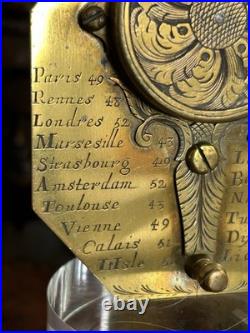 Paris 49
Rennes 48
Londres 52
Marseille 43
Strasbourg 49
Amsterdam 52
Toulouse 43
Vienne 49
Calais 51